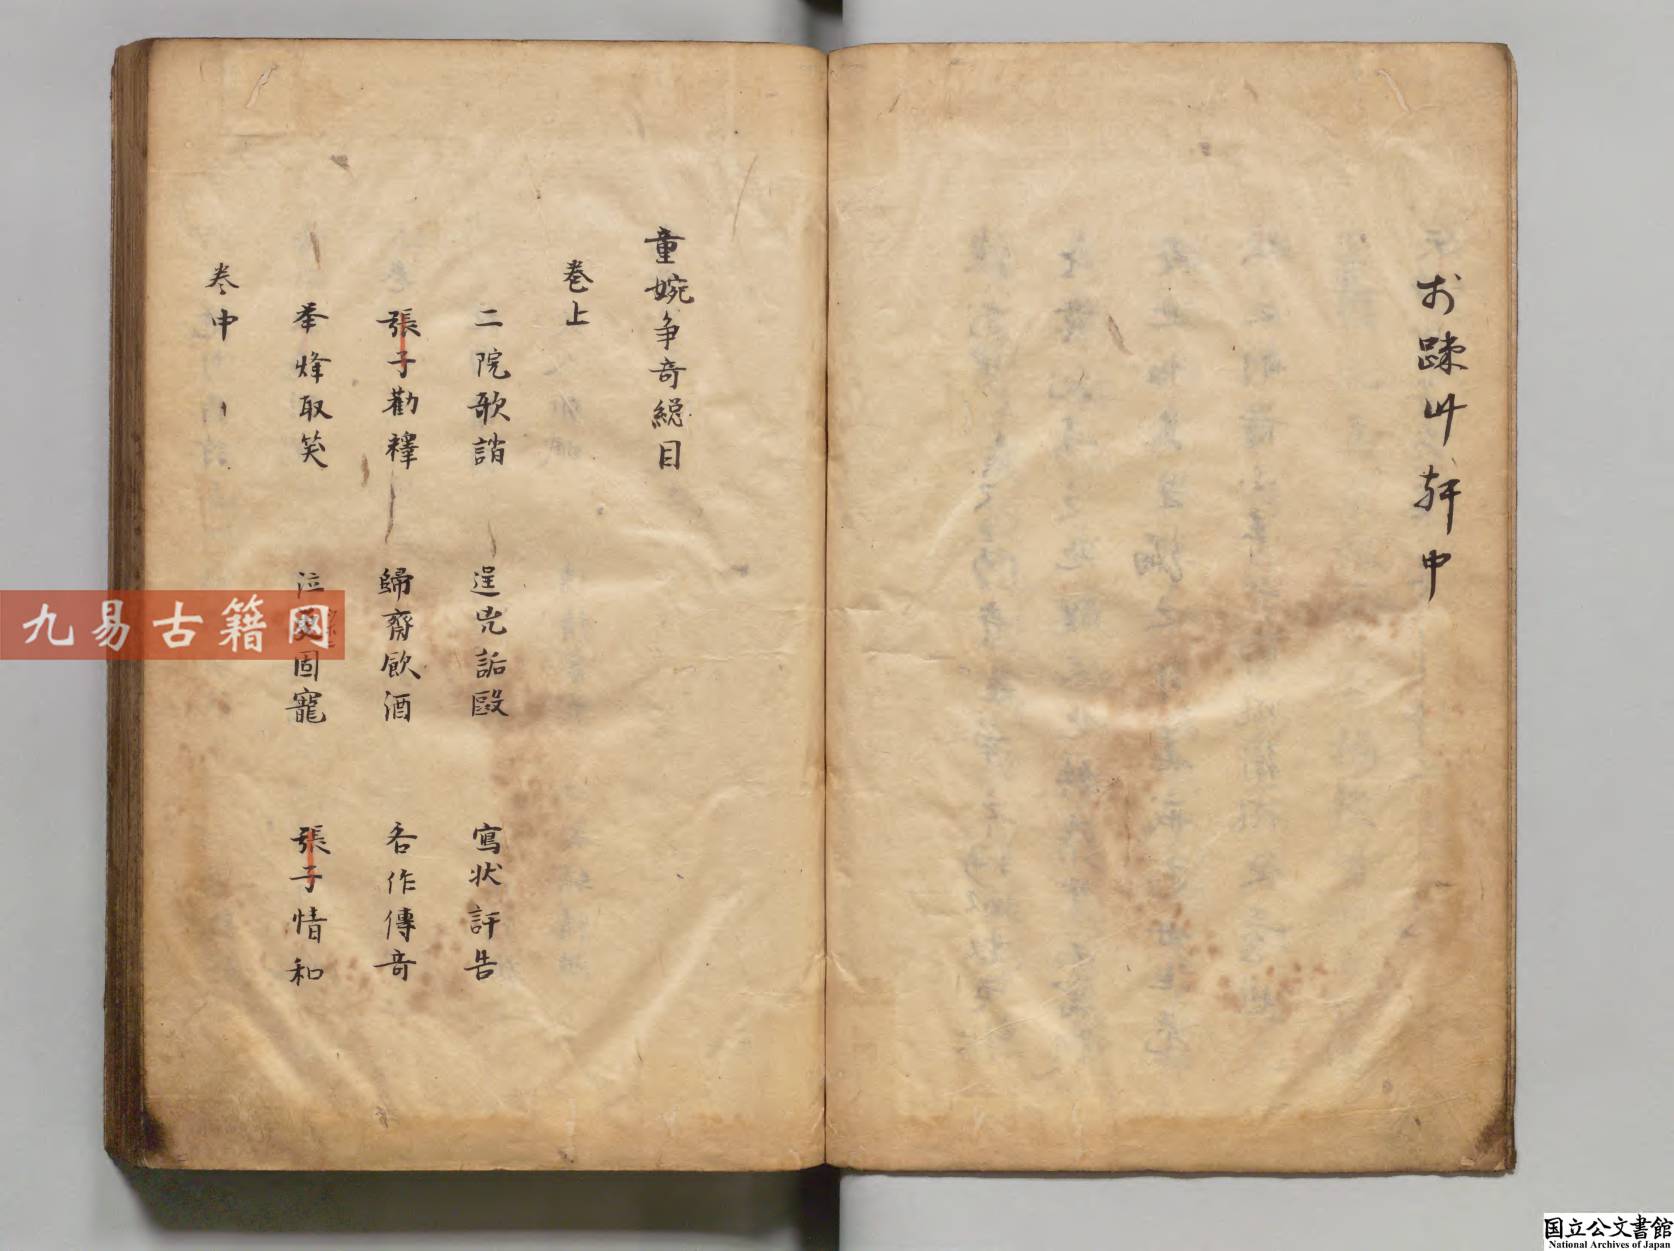 於踈竹軒中
童婉争奇緫目
卷上
二院歌誚 逞兇詬毆 寫狀訐告
張子勸釋 歸齋飲酒 各作傳奇
举烽取笑 泣 固寵 張子情和
卷中
九易古籍网
国立公文書館
National Archives of Japan